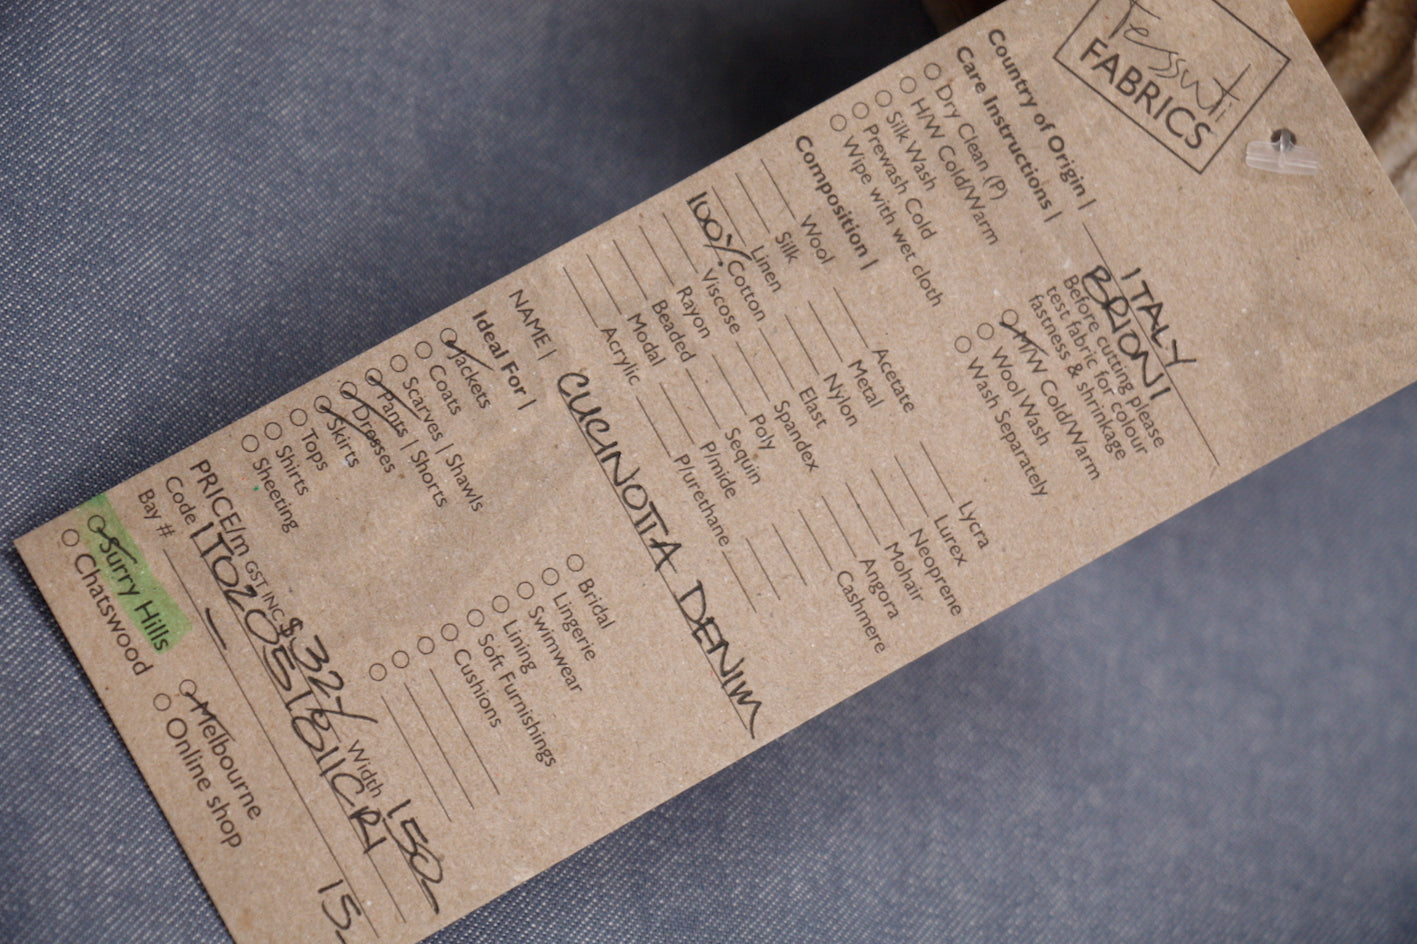 Tessuti
FABRICS
Country of Origin | ITALY
BRIONI
Care Instructions |
Before cutting please
test fabric for colour
fastness & shrinkage
Dry Clean (P)
H/W Cold/Warm
Silk Wash
Prewash Cold
Wipe with wet cloth
H/W Cold/Warm
Wool Wash
Wash Separately
Composition |
Wool
Silk
Linen
100% Cotton
Viscose
Rayon
Beaded
Modal
Acrylic
Acetate
Metal
Nylon
Elast
Spandex
Poly
Sequin
P/mide
P/urethane
Lycra
Lurex
Neoprene
Mohair
Angora
Cashmere
NAME | CUCINOTTA DENIM
Ideal For |
Jackets
Coats
Scarves | Shawls
Pants | Shorts
Dresses
Skirts
Tops
Shirts
Sheeting
Bridal
Lingerie
Swimwear
Lining
Soft Furnishings
Cushions
PRICE/m GST INC $32 Width 150
Code
Bay # 15
Surry Hills
Chatswood
Melbourne
Online shop